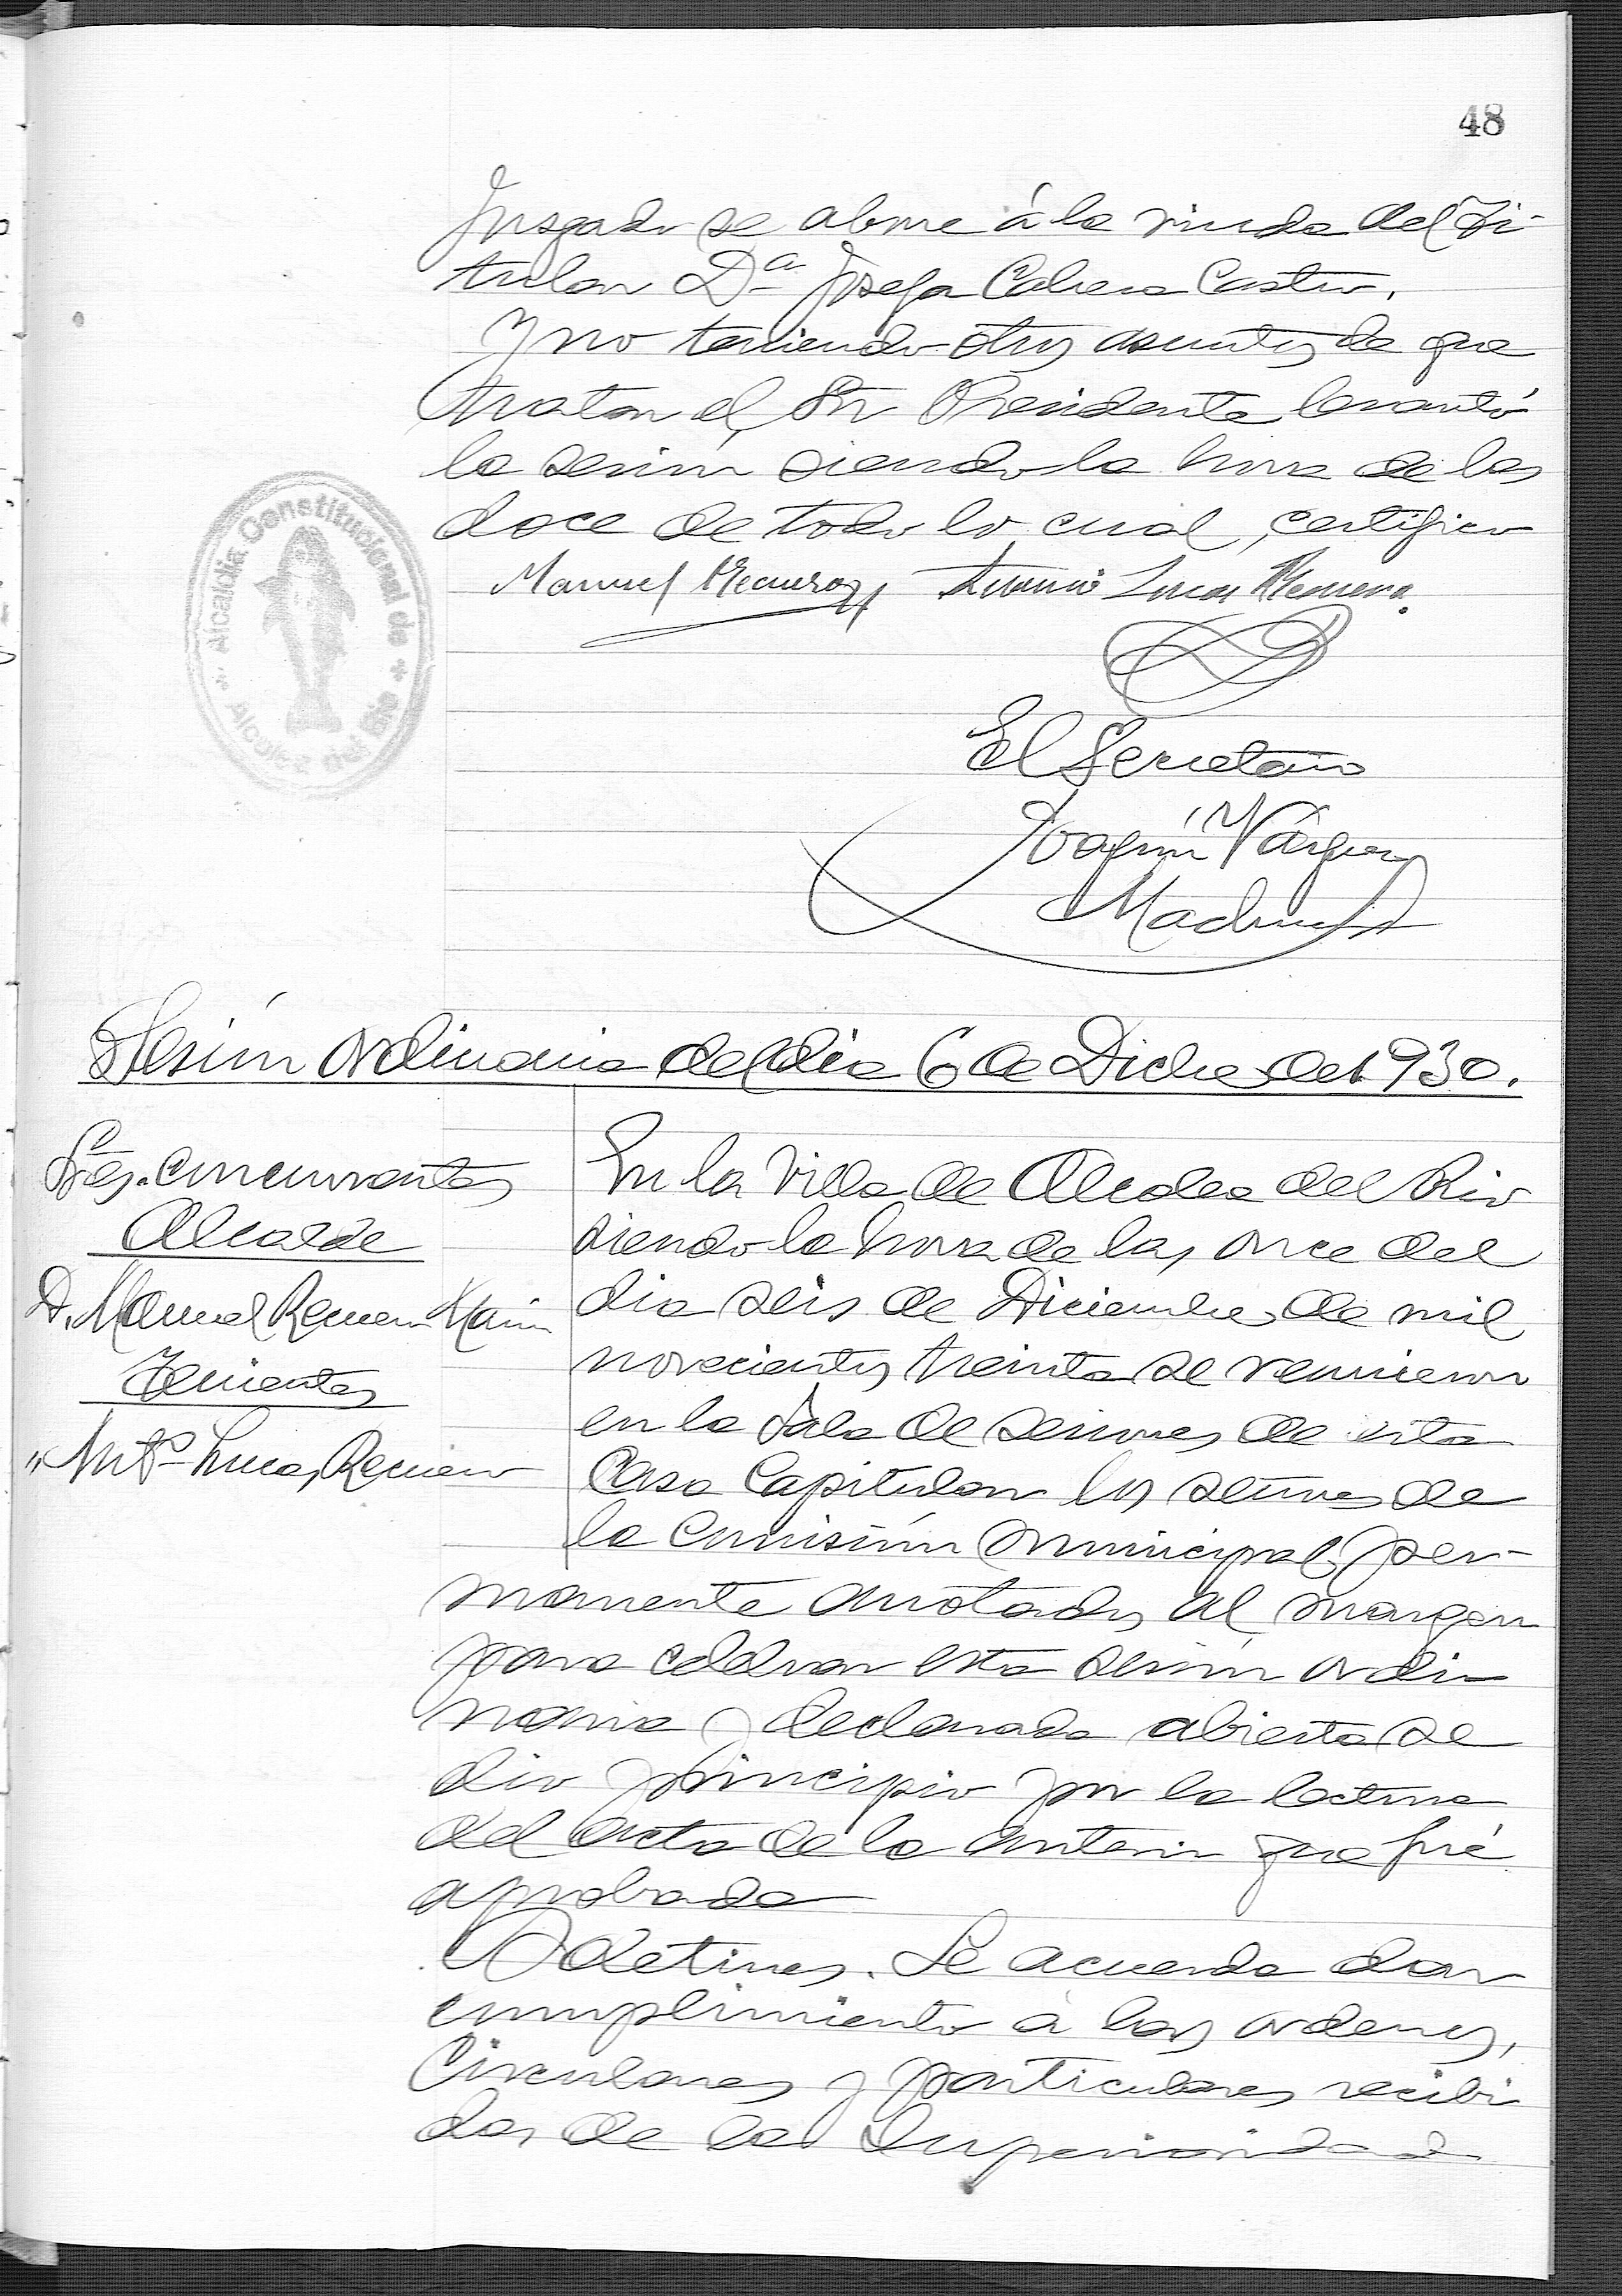 48
Juzgado se abone á la viuda del Ti-
tular Dª Josefa Cabrera Castro.
Y no teniendo otros asuntos de que
tratar el Sr Presidente levantó
la sesión siendo la hora de las
doce de todo lo cual, certifico
Manuel Romero Antonio Lucas Romero.
Alcaldia Constitucional de
Alcolea del Rio
El Secretario
Joaquín Várgas
Madru
Sesión ordinaria del dia 6 de Dicbre de 1930.
Sres. concurrentes
Alcalde
D. Manuel Romero
Tenientes
" Antº Lucas Romero
En la Villa de Alcolea del Rio
siendo la hora de las once del
dia seis de Diciembre de mil
novecientos treinta se reunieron
en la Sala de sesiones de esta
Casa Capitular los señores de
la Comisión municipal per-
manente anotados al margen
para celebrar esta sesión ordi-
naria y declarada abierta se
dio principio por la lectura
del acta de la anterior que fué
aprobada
Boletines. Se acuerda dar
cumplimiento á las ordenes,
Circulares y particulares recibi
das de la Superioridad